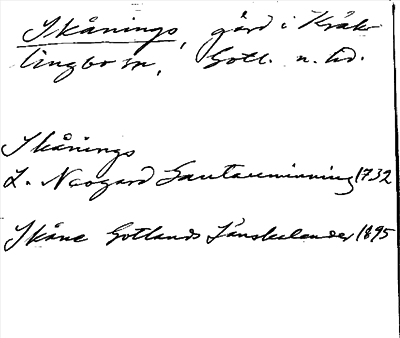 Skånings, gård i Kräk-
lingbo sn, Gotl. n. hd.
Skånings
L. Neogard Gautauminning 1732
Skåne Gotlands Länskalender 1895